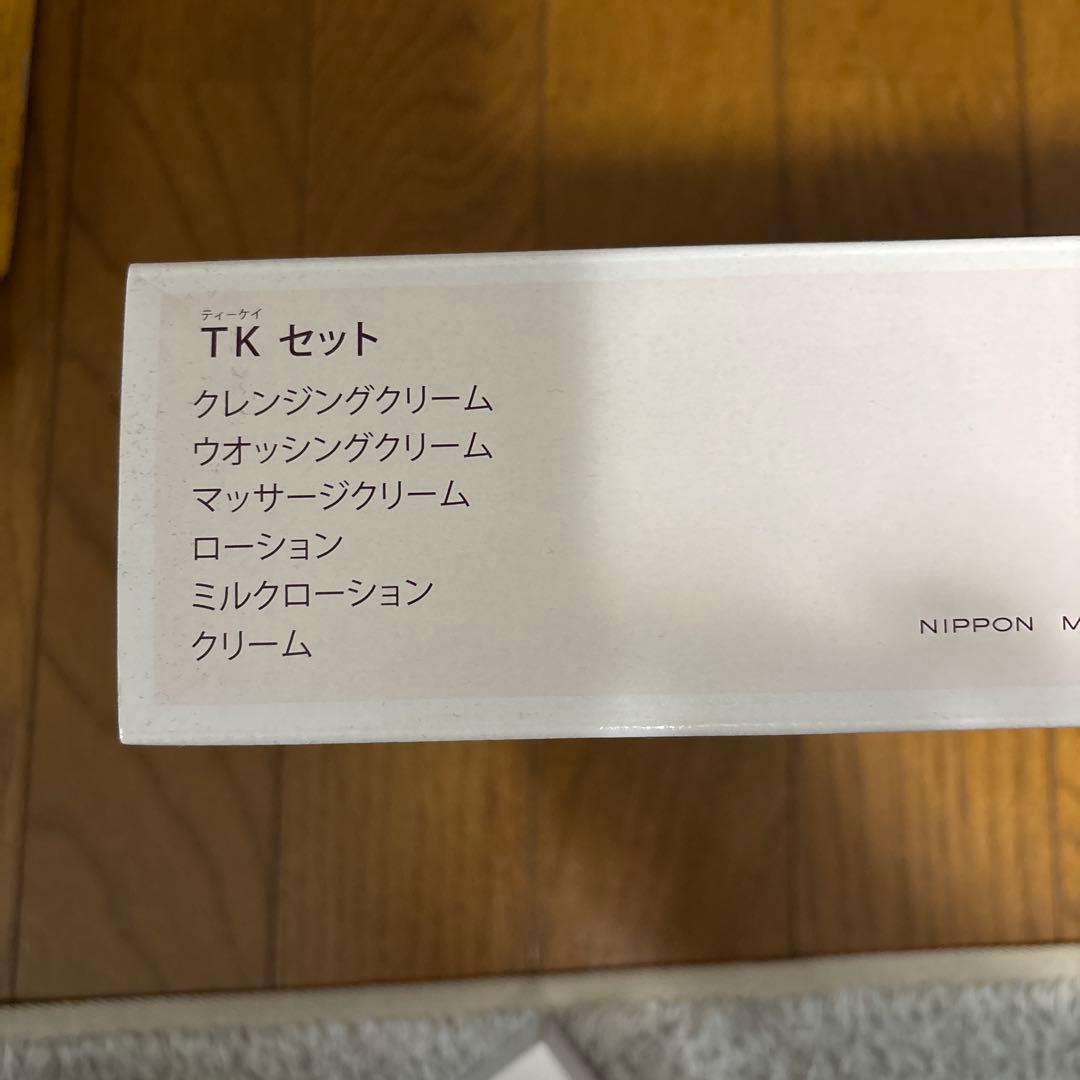 ティーケイ
TK セット
クレンジングクリーム
ウオッシングクリーム
マッサージクリーム
ローション
ミルクローション
クリーム
NIPPON